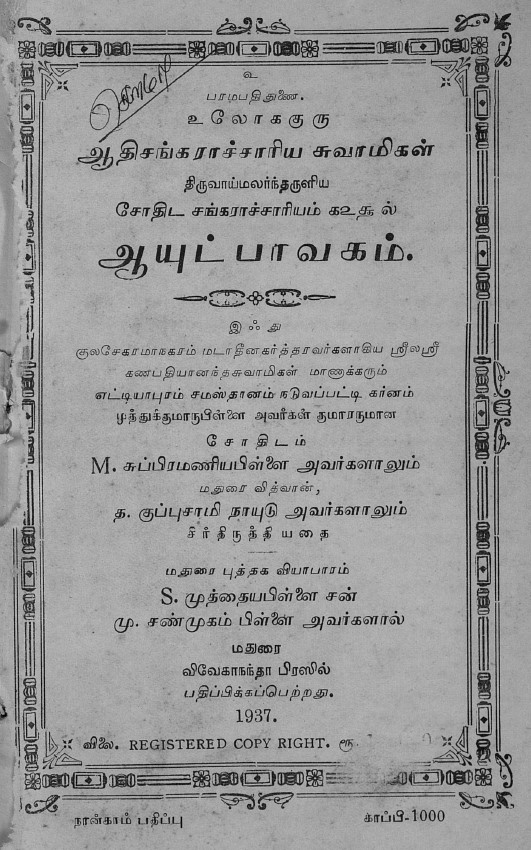 உ
பரமபதிதுணை.
உலோககுரு
ஆதிசங்கராச்சாரிய சுவாமிகள்
திருவாய்மலர்ந்தருளிய
சோதிட சங்கராச்சாரியம் க௨௬ ல்
ஆயுட்பாவகம்.
இஃது
குலசேகரமாநகரம் மடாதீனகர்த்தரவர்களாகிய ஸ்ரீலஸ்ரீ
கணபதியானந்தசுவாமிகள் மாணாக்கரும்
எட்டியாபுரம் சமஸ்தானம் நடுவப்பட்டி கர்னம்
முத்துக்குமாருபிள்ளை அவர்கள் குமாரருமான
சோதிடம்
M. சுப்பிரமணியபிள்ளை அவர்களாலும்
மதுரை வித்வான்,
த. குப்புசாமி நாயுடு அவர்களாலும்
சீர்திருத்தியதை
மதுரை புத்தக வியாபாரம்
S. முத்தையபிள்ளை சன்
மு. சண்முகம் பிள்ளை அவர்களால்
மதுரை
விவேகாநந்தா பிரஸில்
பதிப்பிக்கப்பெற்றது.
1937.
விலை. REGISTERED COPY RIGHT. ரூ.
நான்காம் பதிப்பு காப்பி-1000